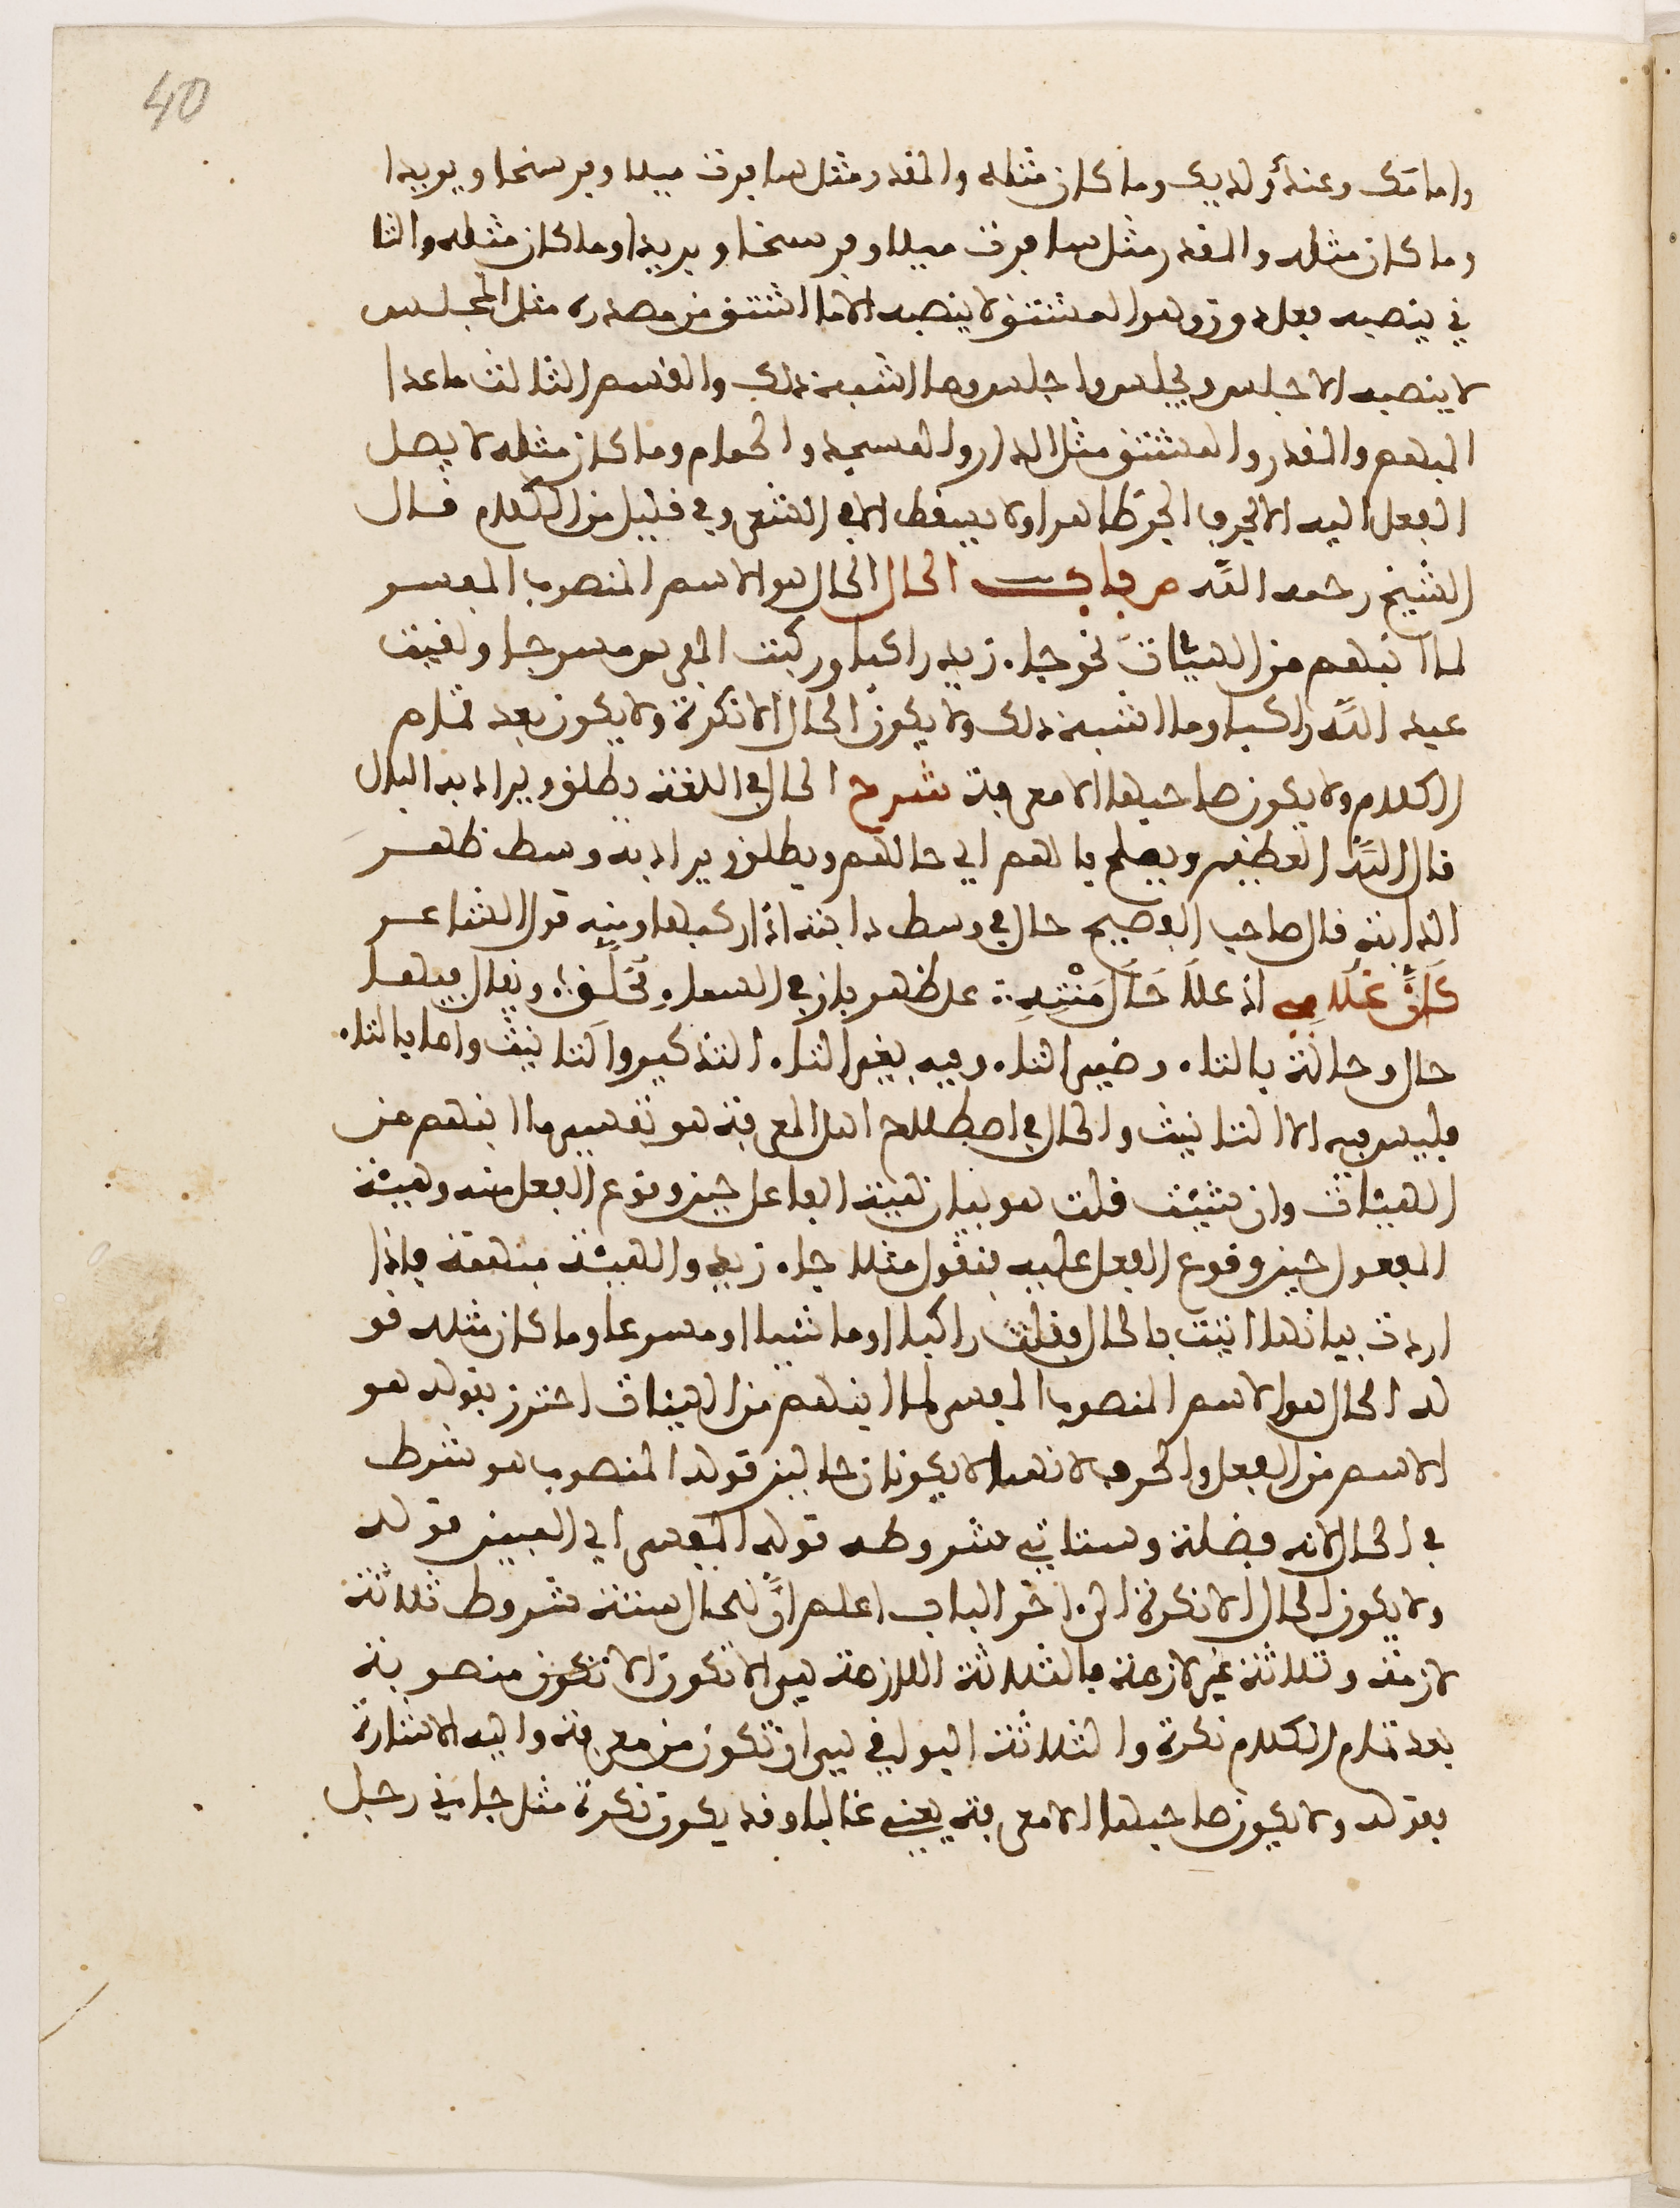 40
وامامك وعندك ولديك وما كان مثله والمقدر مثل سافرت ميلا وفرسخا وبريدا
وما كان مثله والمقدر مثل سافرت ميلا وفرسخا وبريدا وما كان مثله والثا
ني ينصبه فعل دون وهو المشتق لا ينصبه الا ما اشتق من مصدره مثل المجلس
لا ينصبه الا جلس ويجلس واجلس وما اشبه ذلك والقسم الثالث ما عدا
المبهم والمقدر والمشتق مثل الدار والمسجد والحمام وما كان مثله لا يصل
الفعل اليه الا بحرف الجر ظاهرا ولا يسقط الا في الشعر وفي قليل من الكلام قال
الشيخ رحمه الله ص باب الحال الحال هو الاسم المنصوب المفسر
لما انبهم من الهيئات نحو جاء زيد راكبا وركبت الفرس مسرجا ولقيت
عبد الله راكبا وما اشبه ذلك ولا يكون الحال الا نكرة ولا يكون بعد تمام
الكلام ولا يكون صاحبها الا معرفة شرح الحال في اللغة يطلق ويراد به البال
قال الله العظيم ويصلح بالهم اي حالهم ويطلق ويراد به وسط ظهر
الدابة قال صاحب الفصيح حال في وسط دابته اذا ركبها ومنه قول الشاعر
كان غلامي اذ علا حال متنه على ظهر باز في السماء محلق ويقال فيها
حال وحالة بالتاء وغير التاء وفيه بغير التاء التذكير والتانيث واما بالتاء
فليس فيه الا التانيث والحال في اصطلاح اهل المعرفة هو تفسير ما انبهم من
الهيئات وان شئت قلت هو بيان هيئة الفاعل حين وقوع الفعل منه وهيئة
المفعول حين وقوع الفعل عليه فتقول مثلا جاء زيد والهيئة مبهمة فاذا
اردت بيانها اتيت بالحال فقلت راكبا او ماشيا او مسرعا وما كان مثله قو
له الحال هو الاسم المنصوب المفسر لما انبهم من الهيئات احترز بقوله هو
الاسم من الفعل والحرف لانهما لا يكونان حالين قوله المنصوب هو شرط
في الحال لانه فضلة وستاتي شروطه قوله المفسر اي المبين قوله
ولا يكون الحال الا نكرة الى اخر الباب اعلم ان للحال ستة شروط ثلاثة
لازمة وثلاثة غير لازمة فالثلاثة اللازمة هي الا تكون الا تكون منصوبة
بعد تمام الكلام نكرة والثلاثة البواقي هي ان تكون من معرفة واليه الاشارة
بقوله ولا يكون صاحبها الا معرفة يعني غالبا وقد يكون نكرة مثل جاءني رجل